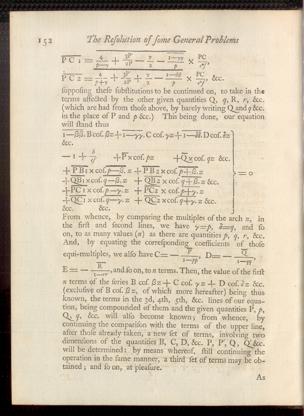 152 The Resolution of some General Problems
supposing these substitutions to be continued on, to take in the
terms affected by the other given quantities Q, q, R, r, &c.
(which are had from those above, by barely writing Q and q &c.
in the place of P and p &c.) This being done, our equation
will stand thus
1—ββ.B cof. βz+1—γγ.C cof. γz+1—δδ.D cof. δz
&c.
+P×cof. pz +Q×cof. qz &c.
+PB1×cof. p—β.z+PB2×cof. p+β.z
+QB1×cof. q—β.z+QB2×cof. q+β.z &c.
+PC1×cof. p—γ.z+PC2×cof. p+γ.z
+QC1×cof. q—γ.z+QC2×cof. q+γ.z &c.
&c. &c.
= 0
From whence, by comparing the multiples of the arch z, in
the first and second lines, we have γ=p, δ=q, and so
on, to as many values (n) as there are quantities p, q, r, &c.
And, by equating the corresponding coefficients of those
equi-multiples, we also have C=— P/1—pp, D=— Q/1—qq,
E=— R/1—rr, and so on, to n terms. Then, the value of the first
n terms of the series B cof. βz+C cof. γz+D cof. δz &c.
(exclusive of B cof. βz, of which more hereafter) being thus
known, the terms in the 3d, 4th, 5th, &c. lines of our equa-
tion, being compounded of them and the given quantities P, p,
Q, q, &c. will also become known; from whence, by
continuing the comparison with the terms of the upper line,
after those already taken, a new set of terms, involving two
dimensions of the quantities B, C, D, &c. P, P', Q, Q' &c.
will be determined: by means whereof, still continuing the
operation in the same manner, a third set of terms may be ob-
tained; and so on, at pleasure.
As